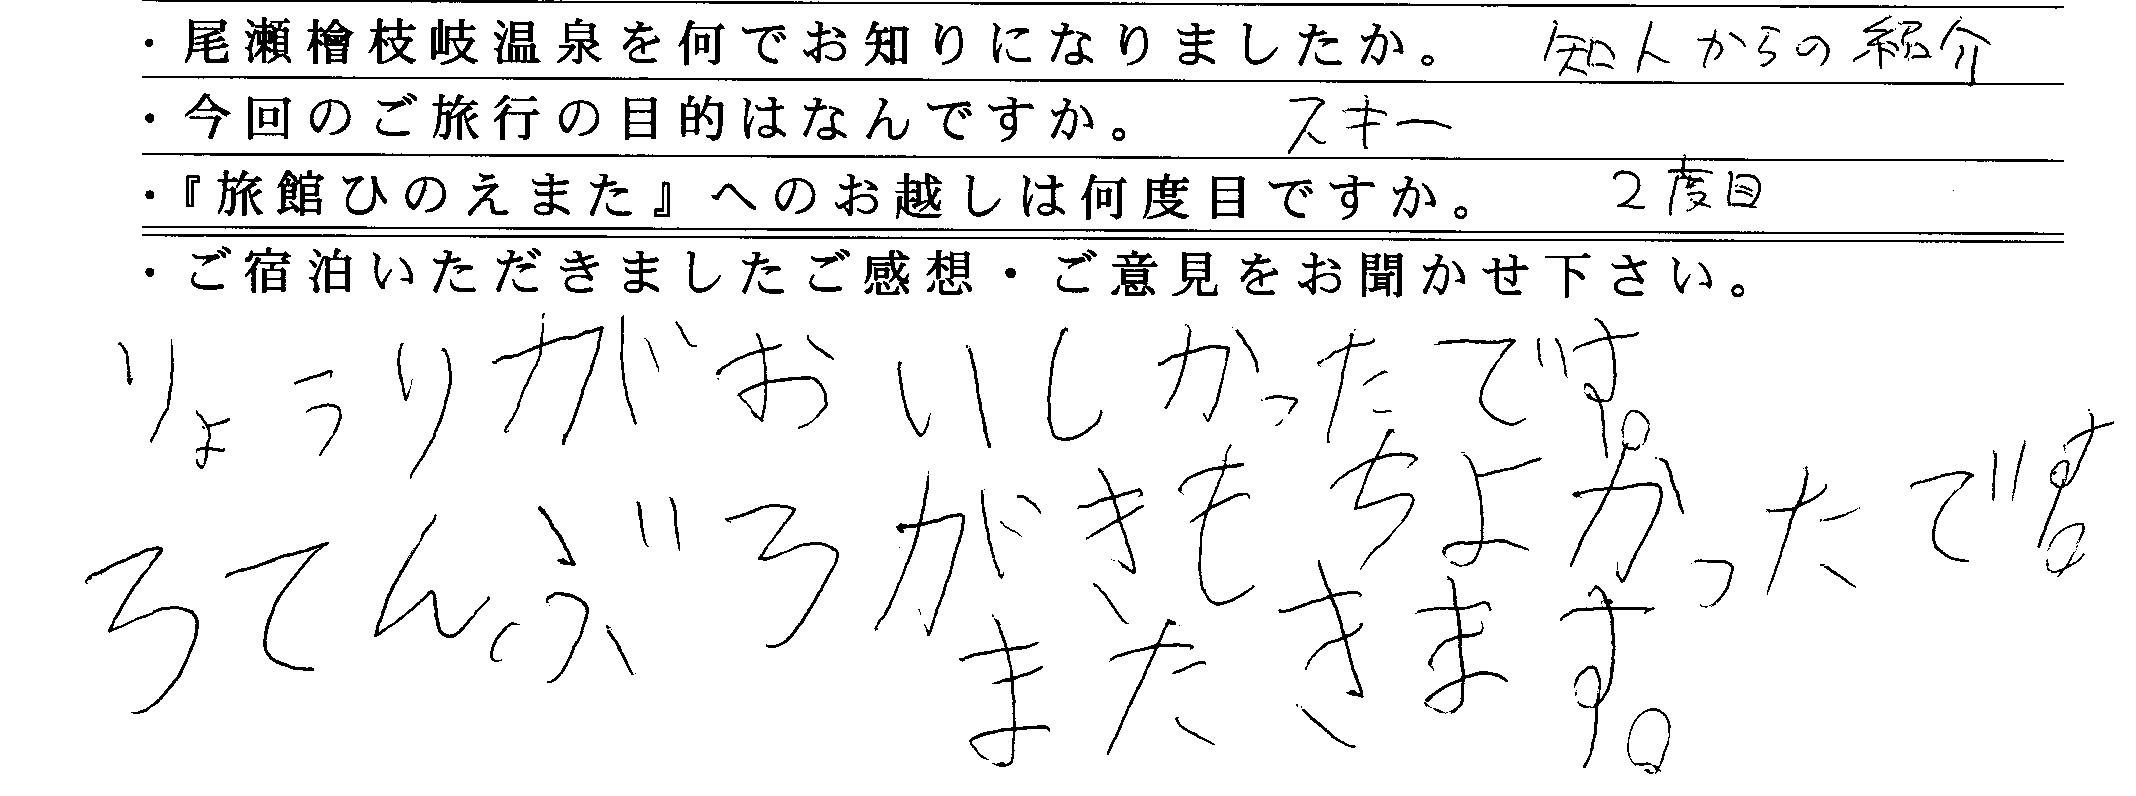 ・尾瀬檜枝岐温泉を何でお知りになりましたか。 知人からの紹介
・今回のご旅行の目的はなんですか。 スキー
・『旅館ひのえまた』へのお越しは何度目ですか。 2度目
・ご宿泊いただきましたご感想・ご意見をお聞かせ下さい。
りょうりがおいしかったです。
ろてんぶろがきもちよかったです。
またきます。